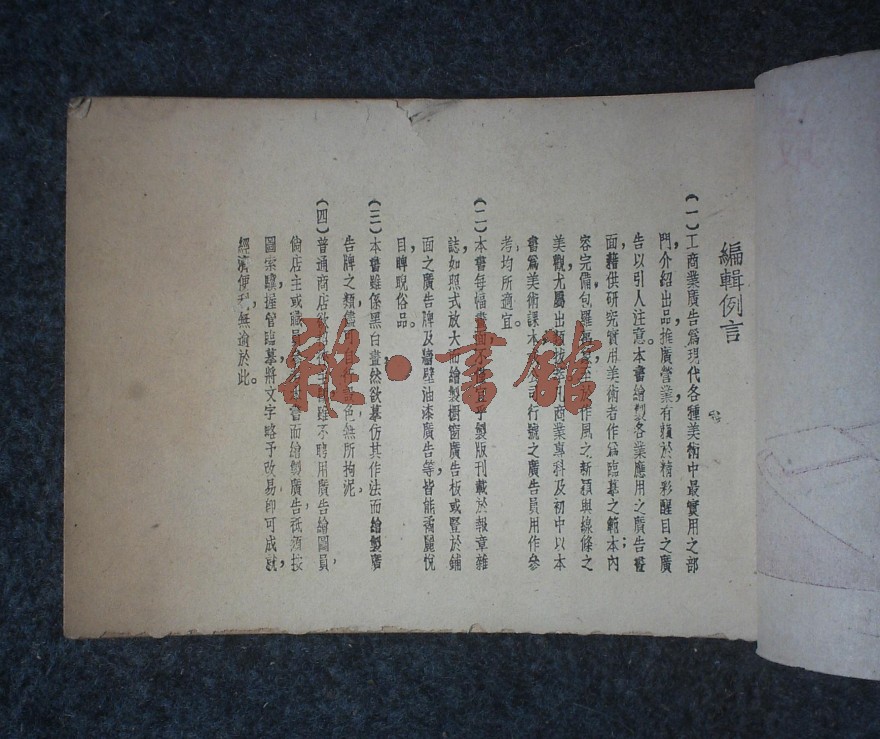 編輯例言
(一)工商業廣告爲現代各種美術中最實用之部
門，介紹出品，推廣營業，有賴於精彩醒目之廣
告以引人注意。本書繪製各業應用之廣告畫
面，藉供研究實用美術者作爲臨摹之範本；內
容完備，包羅 作風之新穎與線條之
美觀，尤屬出 商業專科及初中以本
書爲美術課本 公司行號之廣告員用作參
考，均所適宜。
(二)本書每幅畫面不 乎製版刊載於報章雜
誌，如照式放大而繪製櫥窗廣告板或豎於鋪
面之廣告牌及牆壁油漆廣告等，皆能矞麗悅
目，睥睨俗品。
(三)本書雖係黑白畫，然欲摹仿其作法而繪製廣
告牌之類，儘 色，無所拘泥，
(四)普通商店欲 雖不聘用廣告繪圖員，
倘店主或職員 而繪製廣告，祗須按
圖索驥，握管臨摹，將文字略予改易，即可成就，
經濟便利，無逾於此。
雜·書館